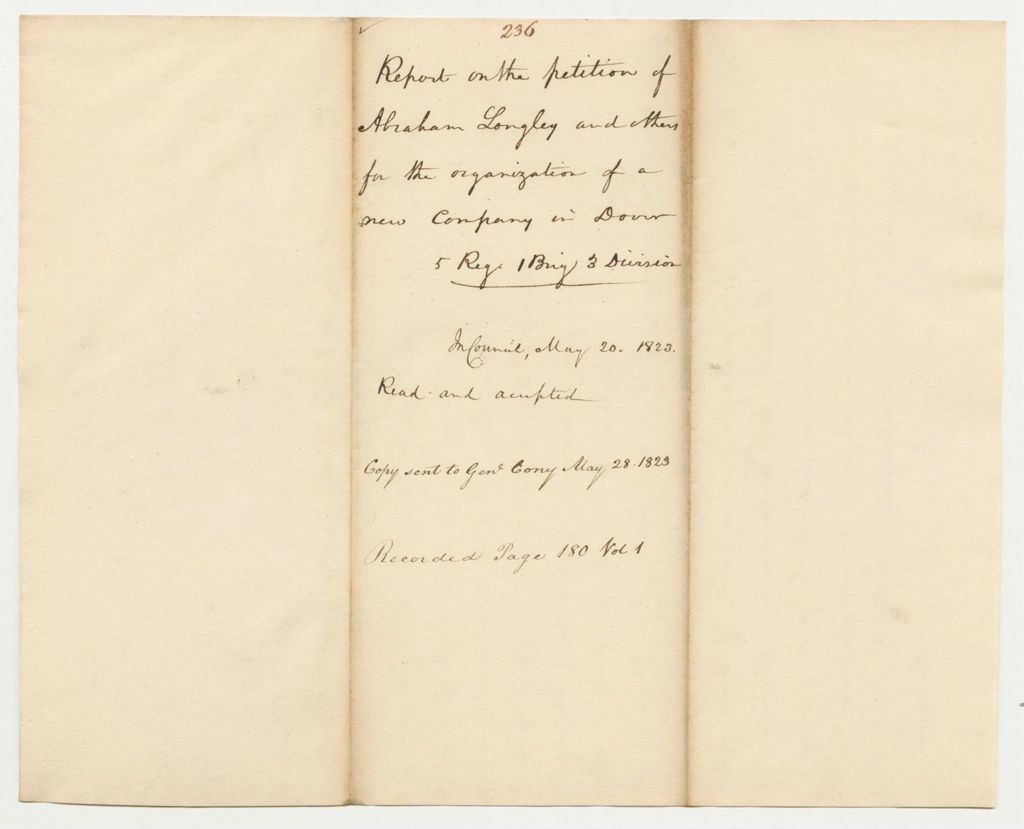 236
Report on the petition of
Abraham Longley and others
for the organization of a
new Company in Dover
5 Reg. 1 Brig 3 Division
In Council, May 20. 1823.
Read and accepted
Copy sent to Genl Cony May 28. 1823
Recorded Page 180 Vol 1